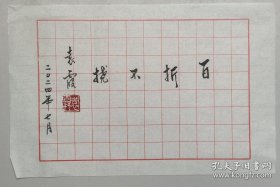 百折不撓
袁霞
二〇二四年七月
孔夫子旧书网